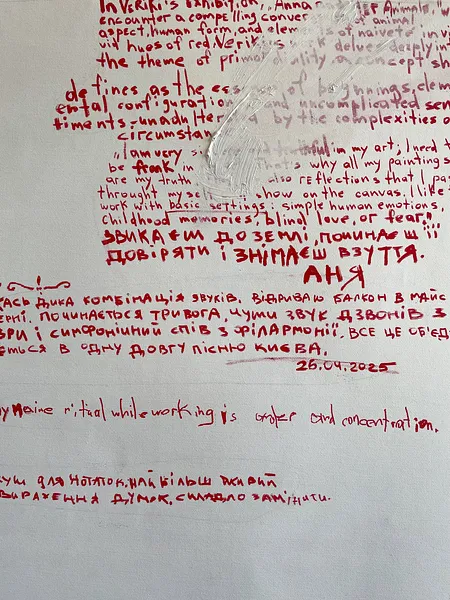 In Veriki's exhibition, "Anna Animals," w
encounter a compelling conver of animal
aspect, human form, and elem s of naiveté in vi
vid hues of red. Veriki's k delves deeply in
the theme of primo diality, a concept sh
defines as the ess of beginnings, elem
ental configuration and uncomplicated sen
timents-unadulter d by the complexities o
circumstan
"I am very si and truthful in my art, I need t
be frank in that's why all my painting
are my truth. also reflections that I pa
through my sel show on the canvas. I like
work with basic settings: simple human emotions,
childhood memories, blind love, or fear."
ЗВИКАЄШ ДО ЗЕМЛІ, ПОЧИНАЄШ ЇЇ
ДОВІРЯТИ І ЗНІМАЄШ ВЗУТТЯ.
АНЯ
АСЬ ДИКА КОМБІНАЦІЯ ЗВУКІВ. ВІДКРИВАЮ БАЛКОН В МАЙС
ЕРНІ. ПОЧИНАЄТЬСЯ ТРИВОГА, ЧУТИ ЗВУК ДЗВОНІВ З
ВРИ І СИМФОНІЧНИЙ СПІВ З ФІЛАРМОНІЇ. ВСЕ ЦЕ ОБ'ЄД
ЄТЬСЯ В ОДНУ ДОВГУ ПІСНЮ КИЄВА.
26.04.2025
my maine ritual while working is order and concentration.
куш ДЛЯ НОТАТОК, НАЙБІЛЬШ ЖИВИЙ
ВИРАЖЕННЯ ДУМОК, СКЛАДНО ЗАМІНИТИ.